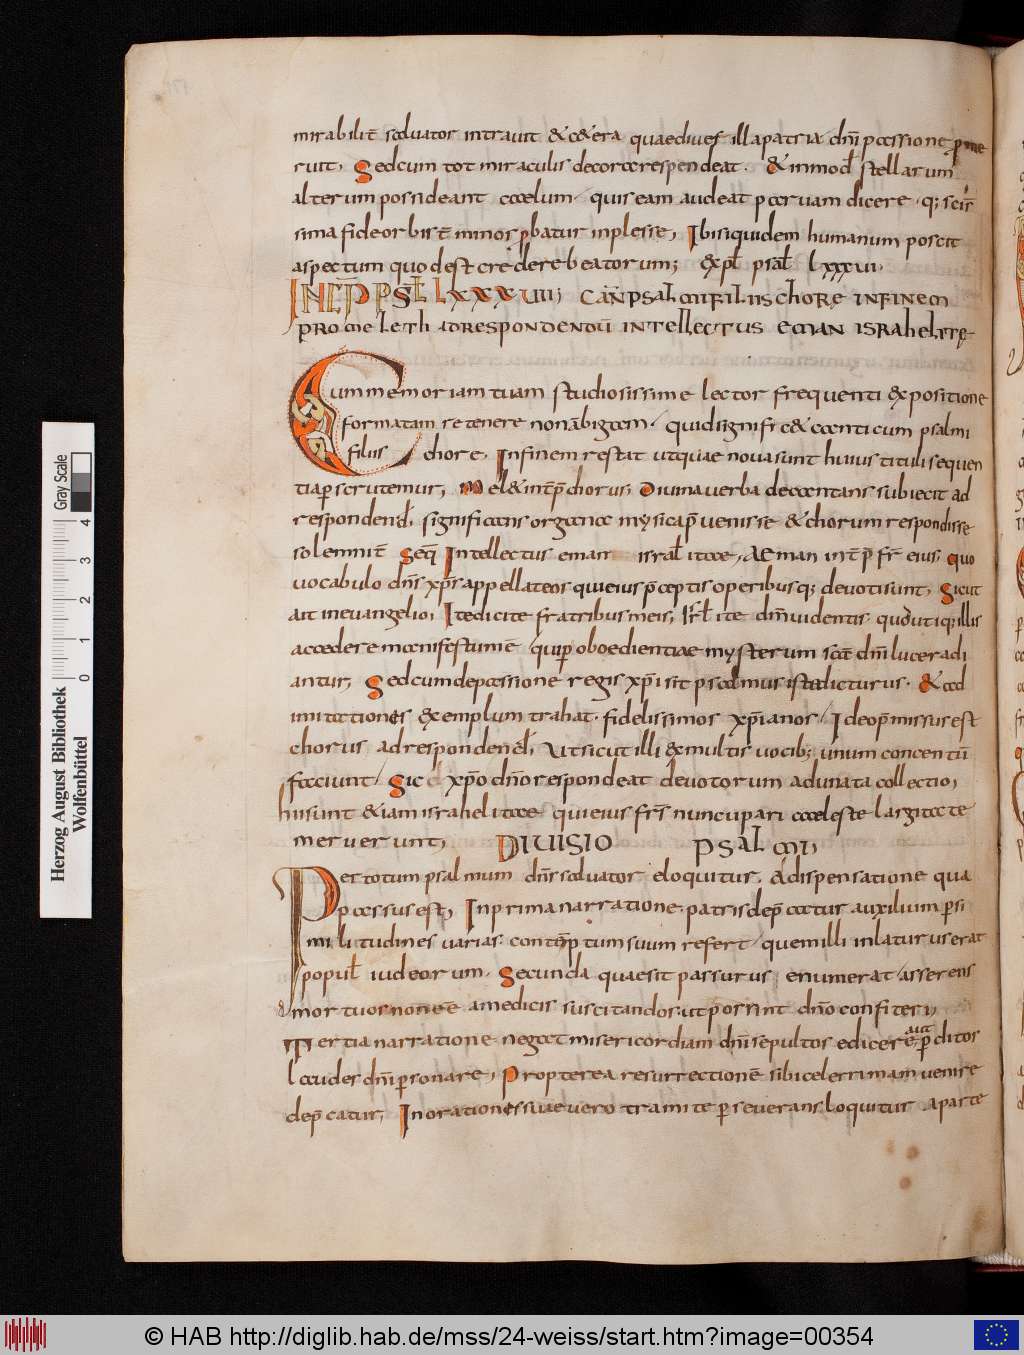 mirabilit̄ saluator intrauit & cetera quaediues illapatria dn̄i passione p̄me
ruit, Sedcum tot miraculis decorarespendeat. & inmod̄ stellarum
alterum possideant caelum, quis eam audeat paruam dicere, q; scis
sima fide orbis t̄ minor p̄batur inplesse, Ibi siquidem humanum poscit
aspectum quod est credere beatorum; expl̄ psal̄ lxxxvi.
INCP̄ PSL̄ LXXXVII; CAN̄ PSALMI FILIIS CHORE IN FINEM
PRO MELETH AD RESPONDENDŪ INTELLECTUS EMAN ISRAHELITE
Cum memoriam tuam studiosissime lector frequenti expositione
formatam retenere nonābigam, quid significet canticum psalmi
filiis chore, Infinem restat utquae noua sunt huius tituli sequen
tia perscrutemur, Melet int̄p̄ chorus, Diuina uerba decantans subiecit ad
respondend̄, significans organa mysica p̄uenisse & chorum respondisse
solemnit̄ Seq̄ Intellectus eman isral̄itae, Aeman int̄p̄ fr̄ eius, quo
uocabulo dn̄s xp̄s appellat eos qui eius p̄ceptis operibusq; deuoti sunt, Sicut
ait in euangelio, Ite dicite fratribus meis, isrl̄ite dm̄ uidentis quod utiq; illis
accedere manifestum ē qui p̄ oboedientiae mysterum sc̄ā dn̄i luce radi
antur, Sed cum de passione regis xp̄i sit psalmus iste dicturus, & ad
imitationes exemplum trahat fidelissimos xp̄ianos, Ideo p̄missus est
chorus ad respondend̄, Ut sicut illi ex multis uocib; unum concentū
faciunt, Sic xp̄o dn̄o respondeat deuotorum adunata collectio,
hii sunt etiam israhelitae qui eius fr̄s nuncupari caeleste largitate
meruerunt, DIUISIO PSALMI,
Per totum psalmum dn̄s saluator eloquitur, A dispensatione qua
passus est, In prima narratione, patris dep̄catur auxilium p̄ si
militudines uarias contēptum suum refert, quem illi inlaturus erat
popul̄ iudeorum, Secunda quae sit passurus enumerat, asserens
mortuos non eē a medicis suscitandos, ut possint dn̄o confiteri,
Tertia narratione negat misericordiam dn̄i sepultos edicere, aut p̄ditos
laudes dn̄i p̄sonare, Propterea resurrectionē sibi celerrimam uenire
dep̄catur, In orationes suae uero tramite p̄seuerans loquitur a parte
Herzog August Bibliothek
Wolfenbüttel
Gray Scale
0 1 2 3 4
© HAB http://diglib.hab.de/mss/24-weiss/start.htm?image=00354